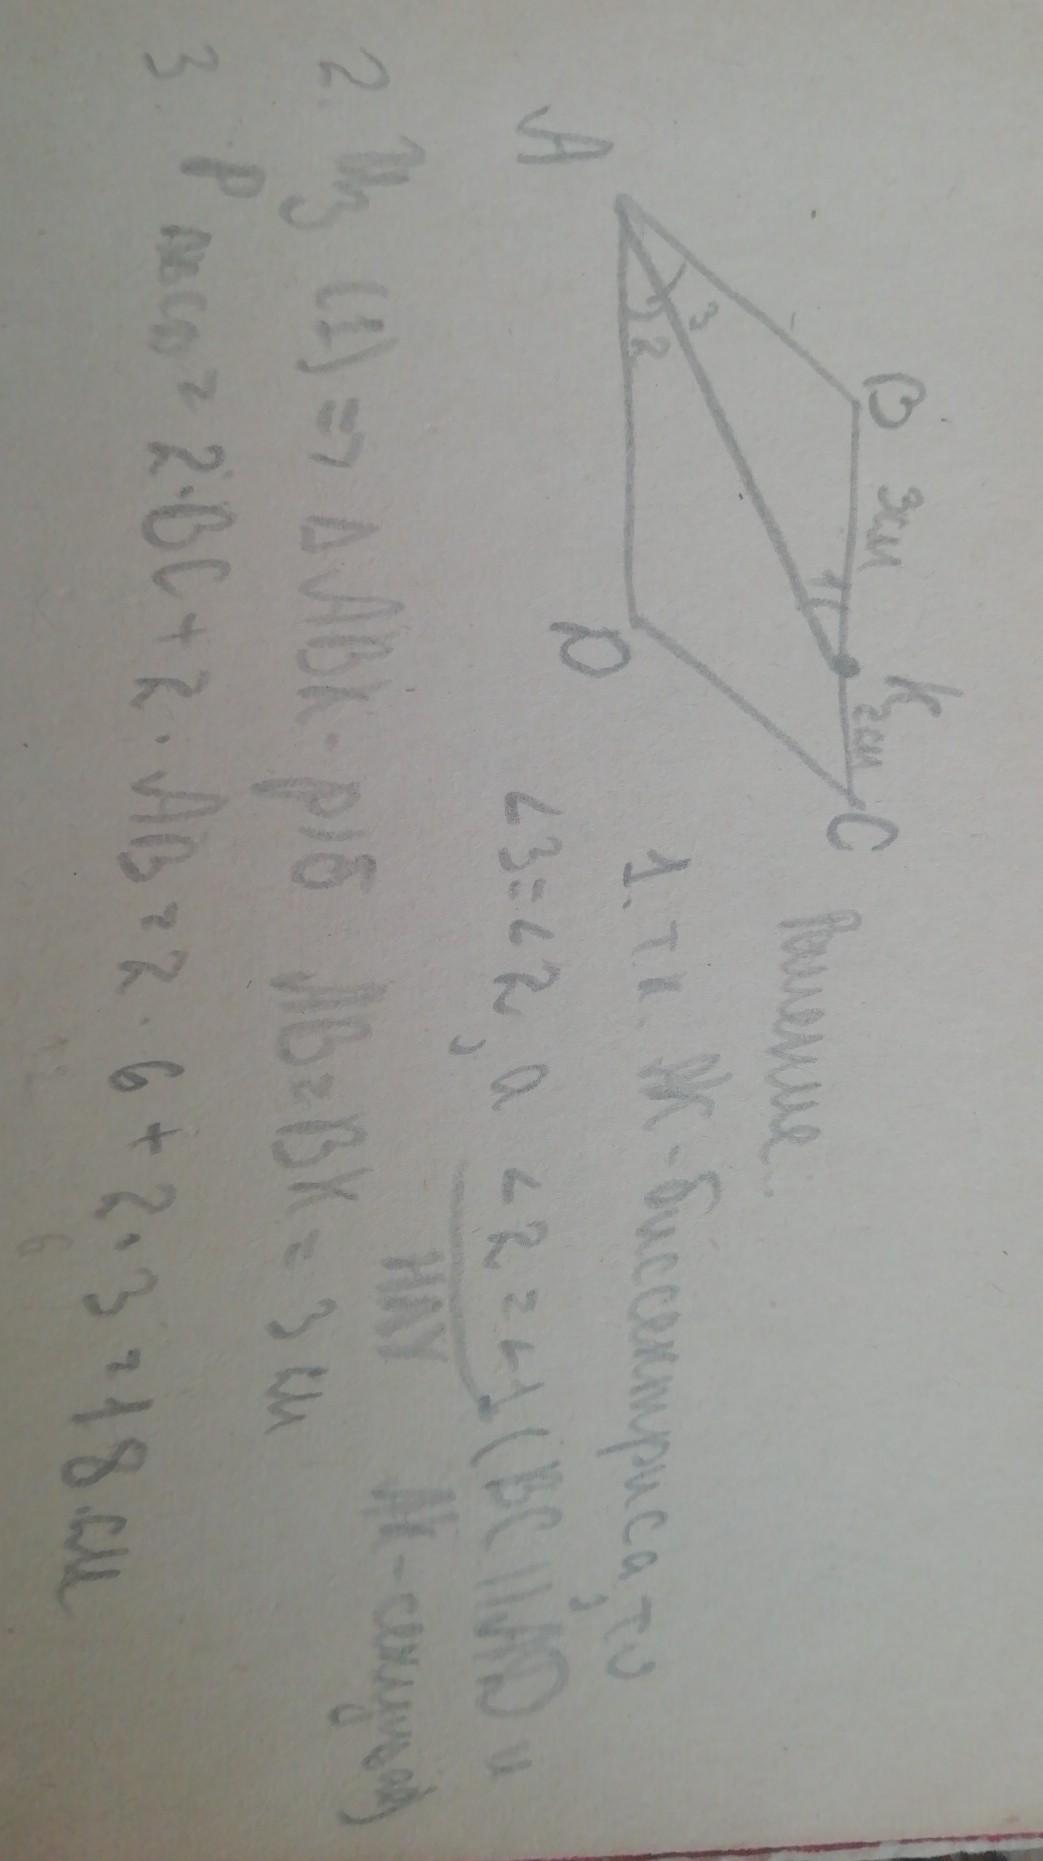 В 3см К 2см С
1
3
2
А
D
Решение.
1. т.к. АК - биссектриса, то
∠3=∠2, а ∠2=∠1 (BC||AD и
НЛУ АК-секущей)
2. Из (1) => Δ ABK - р/б AB=BK = 3 см
3. P ABCD = 2·BC + 2·AB = 2·6 + 2·3 = 18 см
6